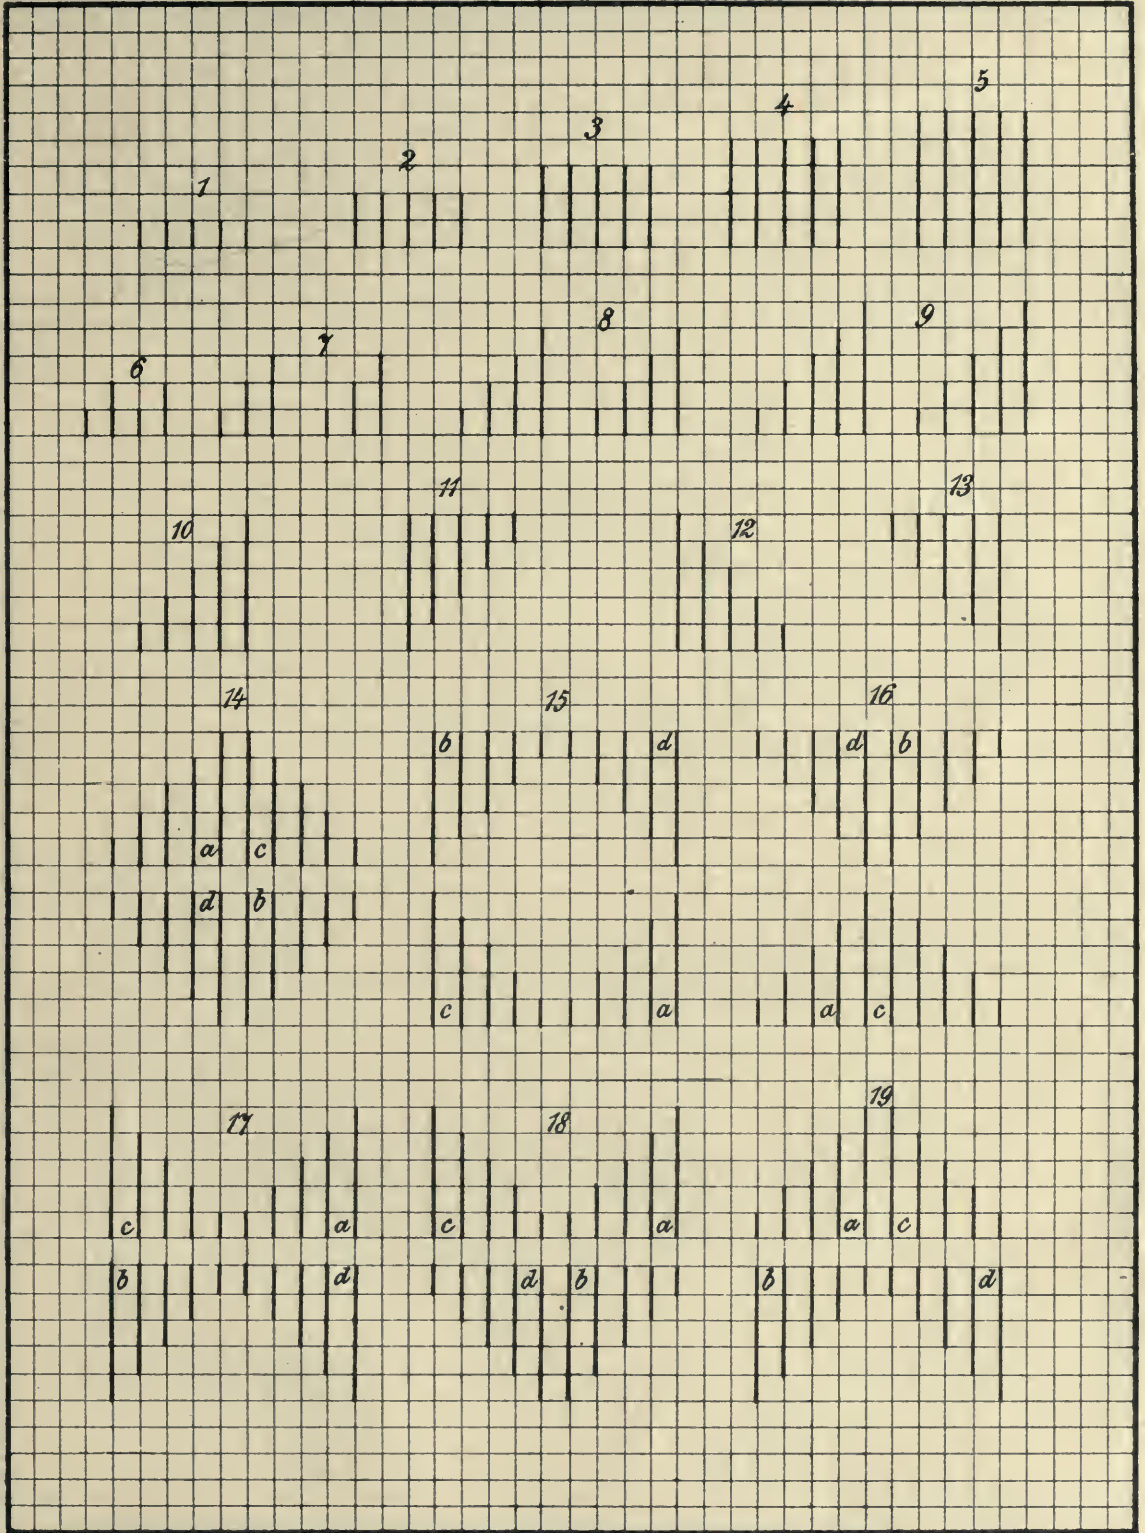 1 2 3 4 5
6 7 8 9
10 11 12 13
14 15 16
b d d b
a c
d b
c a a c
17 18 19
c a c a a c
b d d b b d